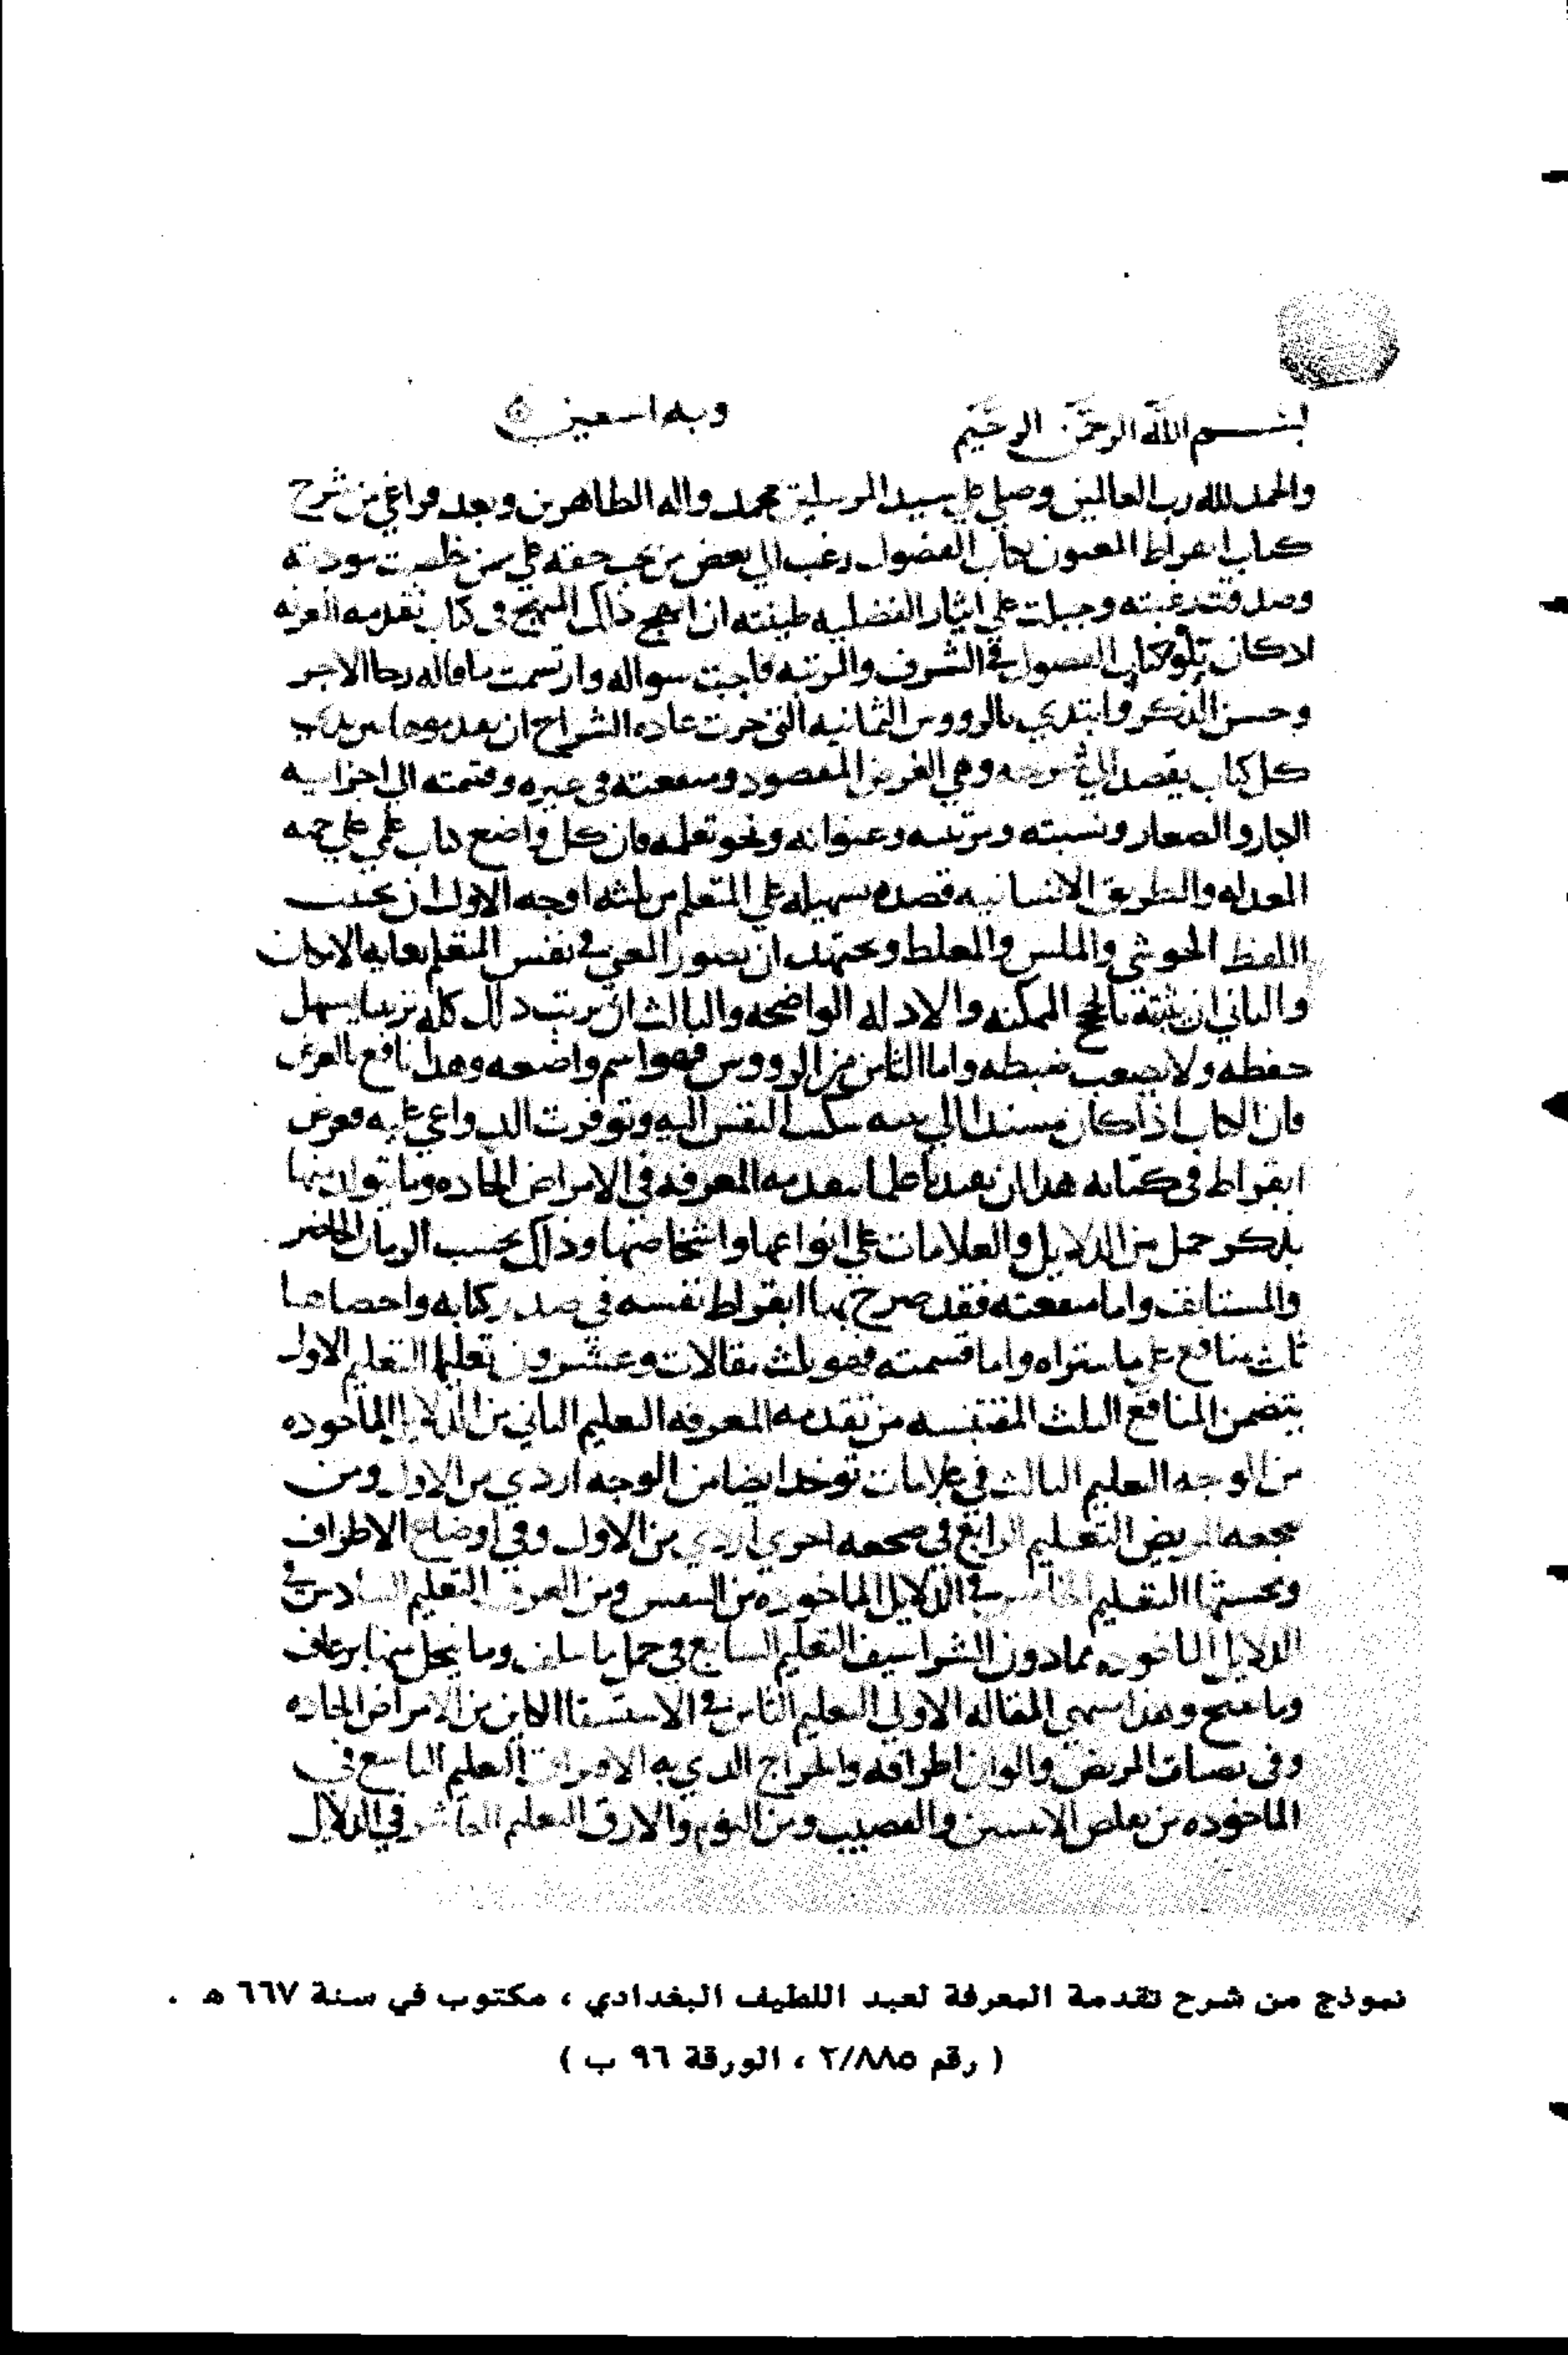 بسم الله الرحمن الرحيم وبه استعين
والحمد لله رب العالمين وصلى على سيد المرسلين محمد واله الطاهرين وبعد فراغي من شرح
كتاب ابقراط المعنون بكتاب الفصول رغب الي بعض من يجب حقه علي ممن خلصت مودته
وصدقت رغبته وجبلت على ايثار الفضيلة طينته ان انهج ذلك المنهج في كتاب تقدمه المعرفه
اذ كان يتلو كتاب الفصول في الشرف والمرتبه فاجبت سواله وارتسمت ما قاله رجا الاجر
وحسن الذكر وابتدي بالرووس الثمانيه التي جرت عاده الشراح ان
كل كتاب يقصد الي شرحه وهي الغرض المقصود ومنفعته في غيره وقسمته الي اجزايه
الكبار والصغار ونسبته ومرتبته وعنوانه ونحو تعلمه فان كل واضع كتاب علمي علي جهه
العداله والطريق الانسانيه قصده تسهيله علي المتعلم من ثلثه اوجه الاول ان يجتنب
اللفظ الحوشي والملبس والمغلط ويجتهد ان يصور المعني في نفس المتعلم بغايه الامكان
والثاني ان يثبته بالحجج الممكنه والادله الواضحه والثالث ان يرتب ذلك كله ترتيبا يسهل
حفظه ولا يصعب ضبطه واما الثامن من الرووس فهو اسم واضعه وهذا نافع بالعرض
فان الكتاب اذا كان مسندا الي سكنت النفس اليه وتوفرت الدواعي عليه وغرض
ابقراط في كتابه هذا ان يفيدنا علما بتقدمه المعرفه في الامراض الحاده وما يتولد منها
بذكر جمل من الدلايل والعلامات علي انواعها واشخاصها وذلك بحسب الزمان الحاضر
والمستانف واما منفعته فقد صرح بها ابقراط نفسه في صدر كتابه واحصاها
ثلث منافع علي ما ستراه واما قسمته فهو ثلث مقالات وعشرون تعليما التعليم الاول
يتضمن المنافع الثلث المقتبسه من تقدمه المعرفه التعليم الثاني من الدلايل الماخوذه
من الوجه التعليم الثالث في علامات توخذ ايضا من الوجه اردي من الاول ومن
ضجعه المريض التعليم الرابع في ضجعه اخري اردي من الاول وفي اوضاع الاطراف
التعليم الخامس في الدلايل الماخوذه من التنفس ومن العرق التعليم السادس في
الدلايل الماخوذه مما دون الشراسيف التعليم السابع في جمل ما سلف وما ينحل منها برعاف
وما يتقيح وهنا تنتهي المقاله الاولي التعليم الثامن في الاستسقا الكاين من الامراض الحاده
وفي المريض والوان اطرافه والخراج الذي التعليم التاسع في
الماخوذه من تقلص الانثيين والقضيب ومن النوم والارق التعليم العاشر في الدلايل
نموذج من شرح تقدمة المعرفة لعبد اللطيف البغدادي ، مكتوب في سنة ٦٦٧ هـ .
( رقم ٢/٨٨٥ ، الورقة ٩٦ ب )